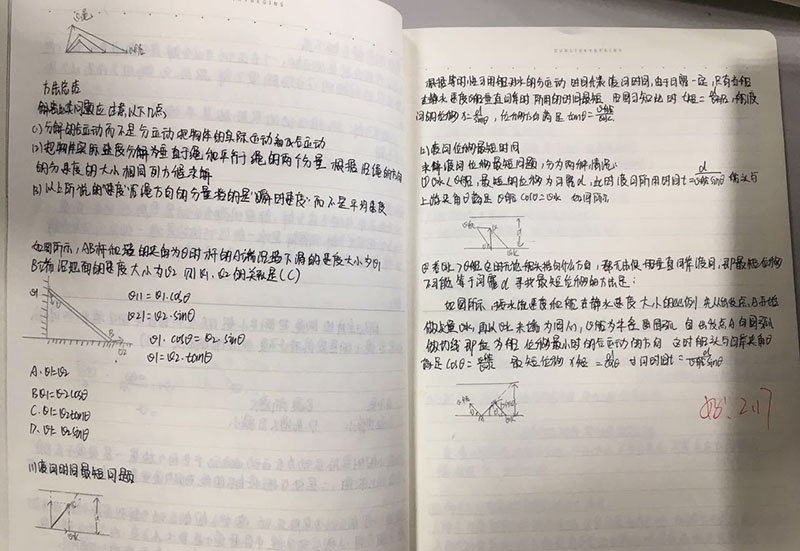 方法总结
解答此类问题应注意以下几点
(1)分解的合运动而不是分运动 把物体的实际运动看成合运动
(2)把物体实际速度分解为垂直于绳和平行于绳的两个分量 根据沿绳的方向
的分速度的大小相同列方程求解
(3)以上所说的"速度"沿绳方向的分量指的是"瞬时速度"而不是平均速度
如图所示,AB杆和墙的夹角为θ时 杆的A端沿墙下滑的速度大小为v1
B端沿地面的速度大小为v2 则v1,v2的关系是(C)
v11=v1·cosθ
v21=v2·sinθ
v1·cosθ=v2·sinθ
v1=v2·tanθ
A.v1=v2
B.v1=v2cosθ
C.v1=v2tanθ
D.v1=v2sinθ
(1)渡河时间最短问题
根据等时性可用船对水的分运动时间代表渡河时间,由于河宽一定,只有当船
在静水速度v船垂直河岸时 所用的时间最短
位移方向满足tanθ=
(2)渡河位移最短时间
求解渡河位移最短问题,分为两种情况
①v水<v船,最短的位移为河宽d,此时渡河所用时间t=d/v船sinθ 船头与
上游夹角θ满足 v船cosθ=v水 如图所示
②若v水>v船 这时无论船头指向什么方向,都无法使船垂直河岸渡河,即最短位移
不可能等于河宽d 寻找最短位移的方法是:
如图所示,按水流速度和船在静水速度大小的比例 先从出发点A开始
做矢量v水,再以v水末端为圆心,v船为半径画圆弧 自出发点A向圆弧
做切线 即为船位移最小时的合运动的方向 这时船头与河岸夹角θ
满足cosθ=v船/v水 最短位移x短=d/cosθ 过河时间t=d/v船sinθ
2.17